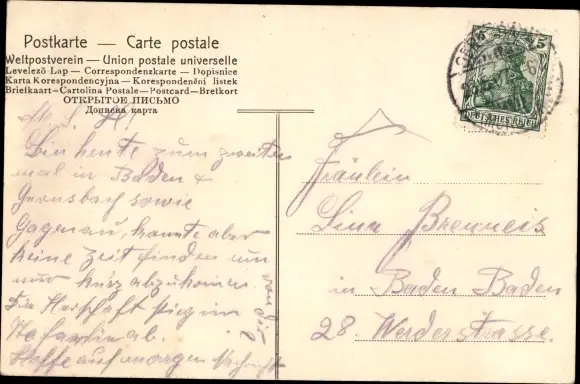 Postkarte — Carte postale
Weltpostverein — Union postale universelle
Levelező Lap — Correspondenzkarte — Dopisnice
Karta Korespondencyjna — Korespondenční lístek
Briefkaart — Cartolina Postale — Postcard — Bretkort
ОТКРЫТОЕ ПИСЬМО
Дописна карта
5
DEUTSCHES REICH
M. L. !
Bin heute zum zweiten
mal in Baden &
Gernsbach sowie
Gagenau, konnte aber
keine Zeit finden um
nur kurz abzukommen.
Die Herschaft stieg im
ab.
Hoffe auf morgen Nachricht
von dir
Fräulein
Lina Brenneis
in Baden Baden
28. Werderstrasse.